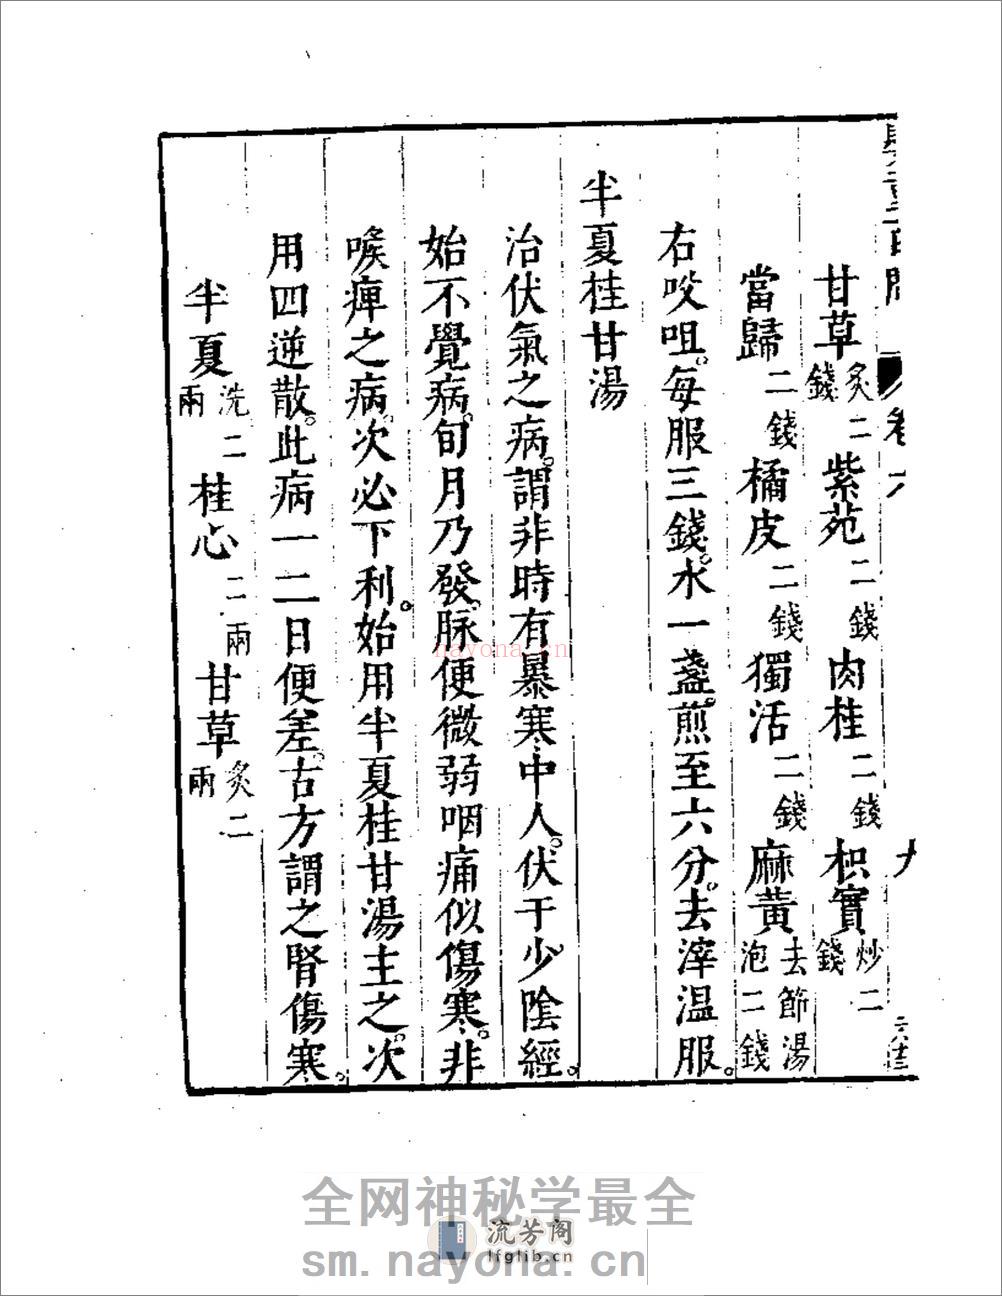 卷六
甘草炙二錢 紫苑二錢 肉桂二錢 枳實炒二錢
當歸二錢 橘皮二錢 獨活二錢 麻黃去節湯泡二錢
右㕮咀。每服三錢。水一盞。煎至六分。去滓温服。
半夏桂甘湯
治伏氣之病。謂非時有暴寒中人。伏于少陰經。
始不覺病。旬月乃發。脉便微弱咽痛似傷寒。非
喉痺之病。次必下利。始用半夏桂甘湯主之。次
用四逆散。此病一二日便差。古方謂之腎傷寒。
半夏洗二兩 桂心二兩 甘草炙二兩
nayona.cn
全网神秘学最全
流芳阁
lfglib.cn
sm.nayona.cn